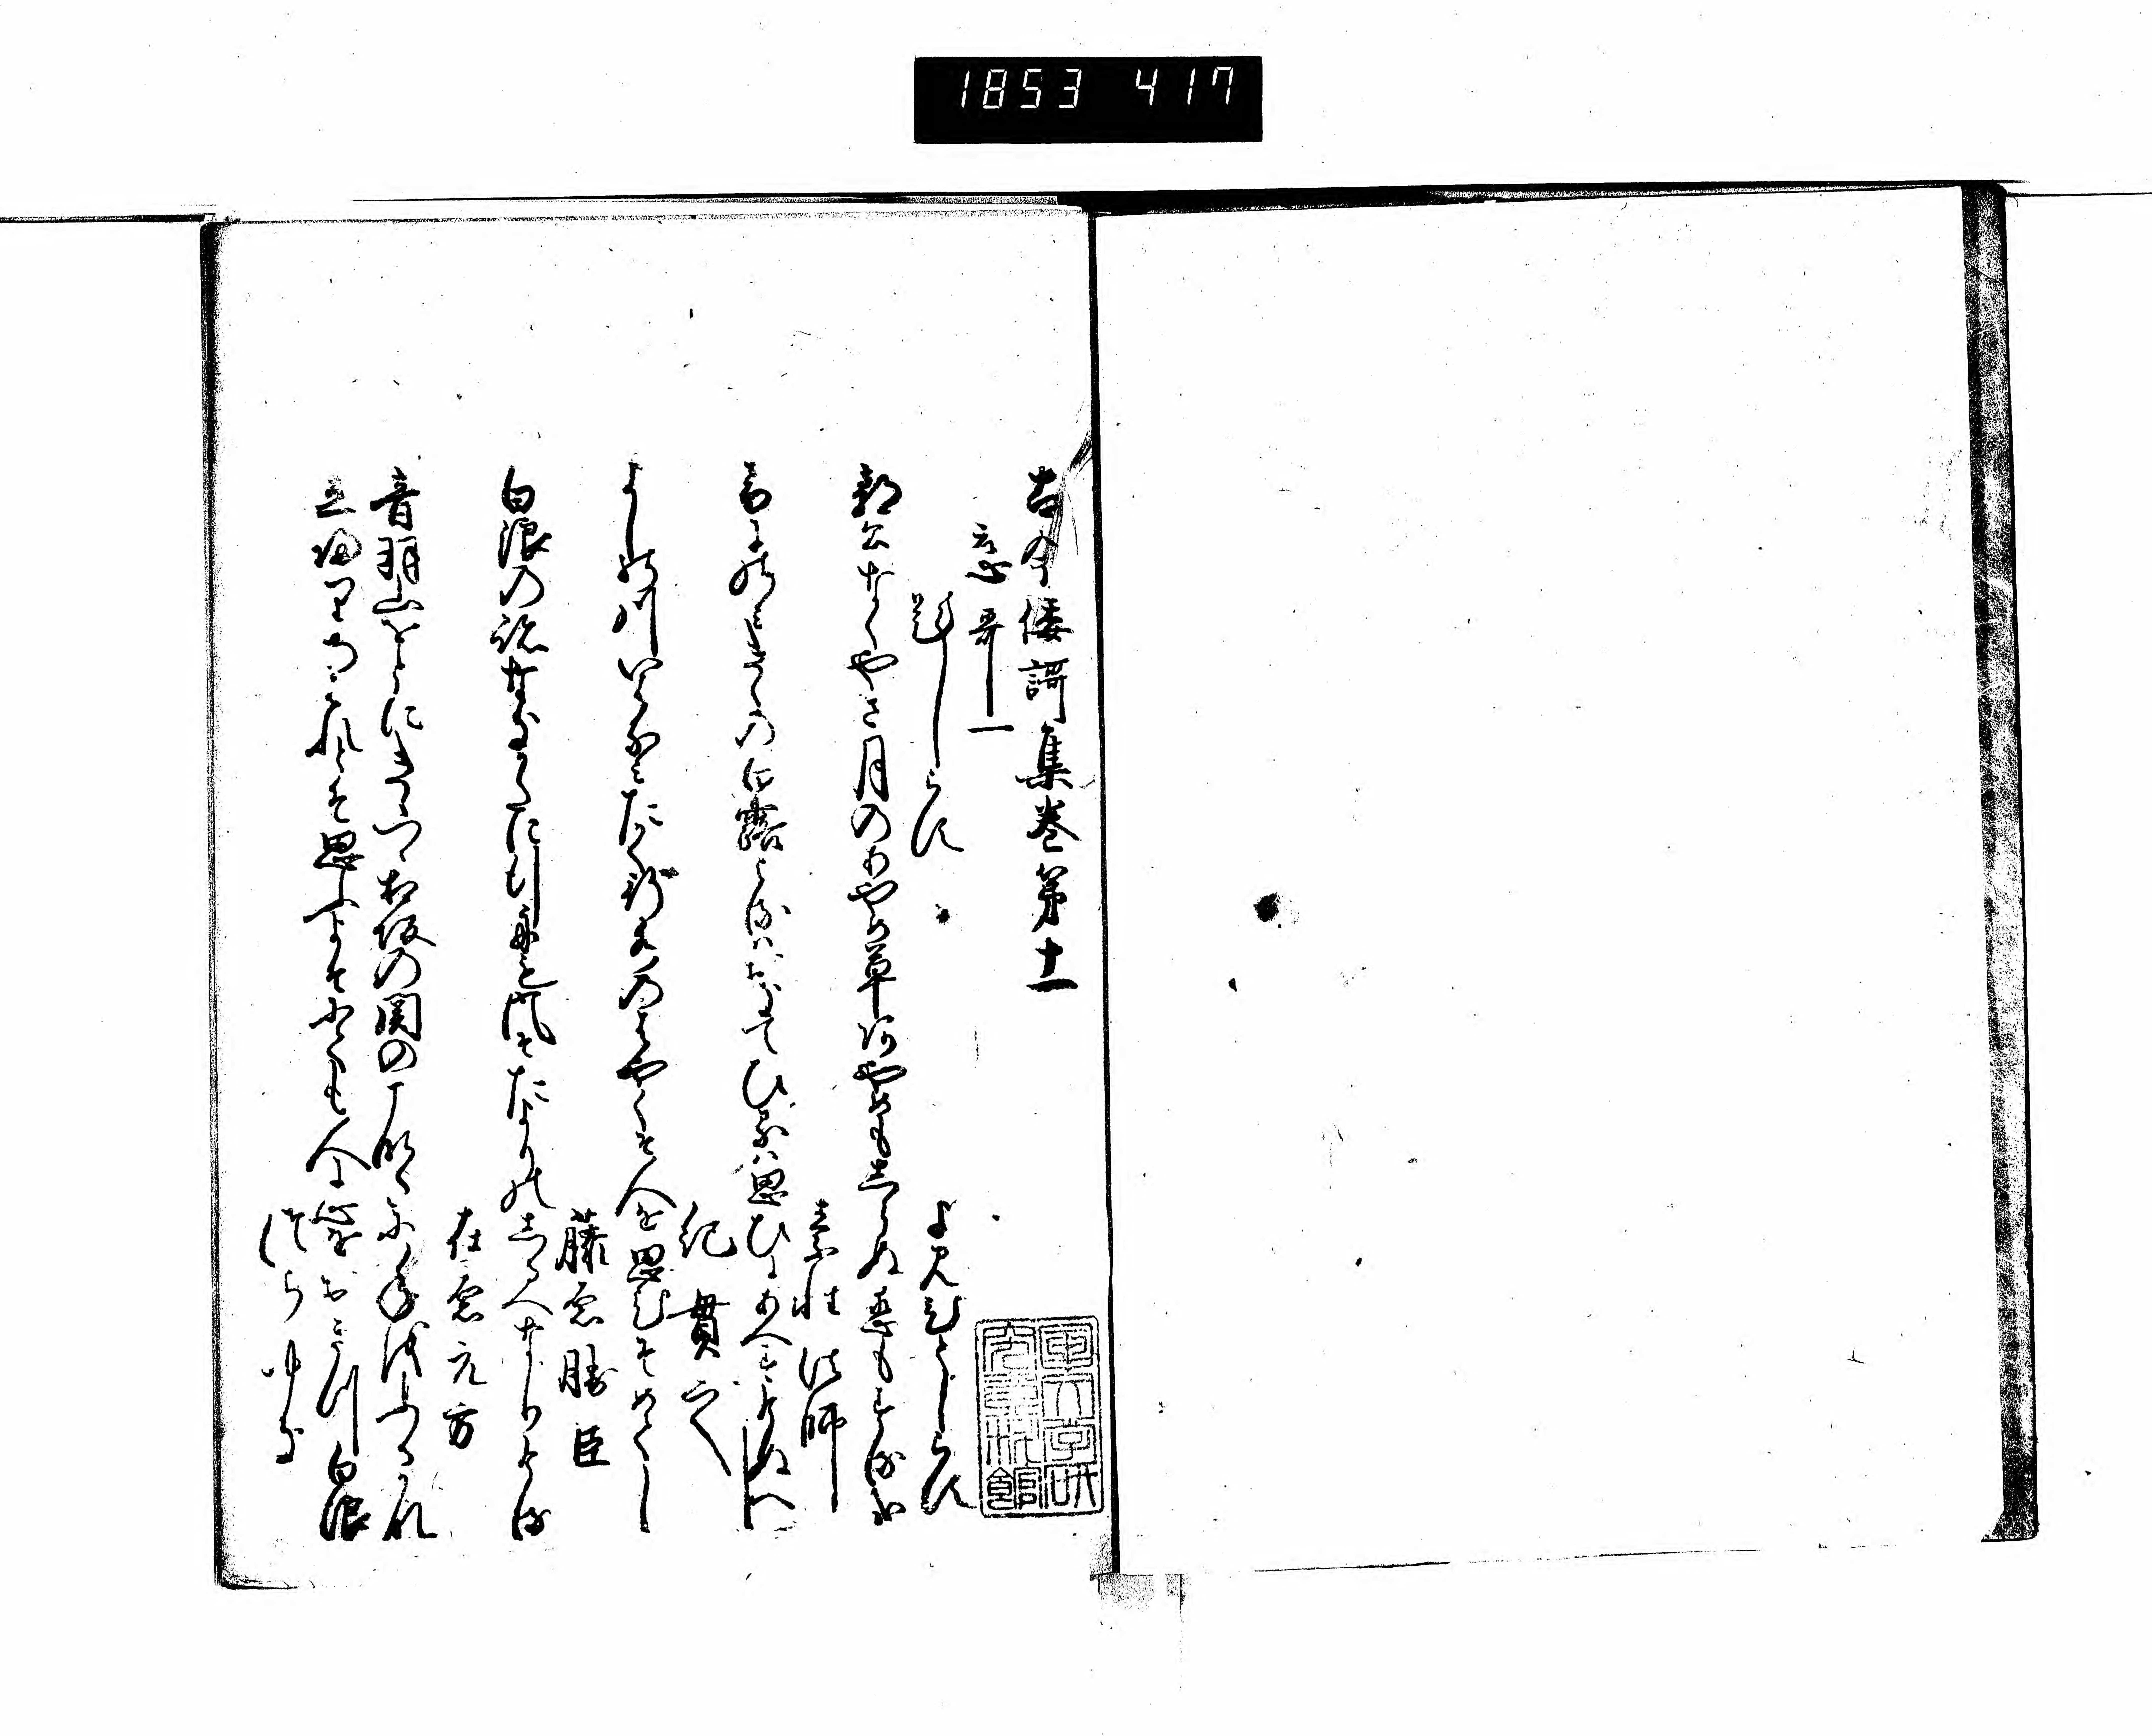 1853 417
古今倭謌集巻第十一
恋哥一
題しらす
よみ人しらす
郭公なくやさ月のあやめ草あやめもしらぬ恋もする哉
素性法師
音にのみきくの白露よるはおきてひるは思ひにあへすけぬへし
紀貫之
よしの川いはなみたかく行水のはやくそ人を思ひそめてし
藤原勝臣
白浪の跡なきかたに行舟も風そたよりのしるへなりける
在原元方
音羽山をとにきゝつゝ相坂の関のこなたに年をふるかな
立帰りあはれとそ思ふよそにても人に心をおきつ白浪
つらゆき